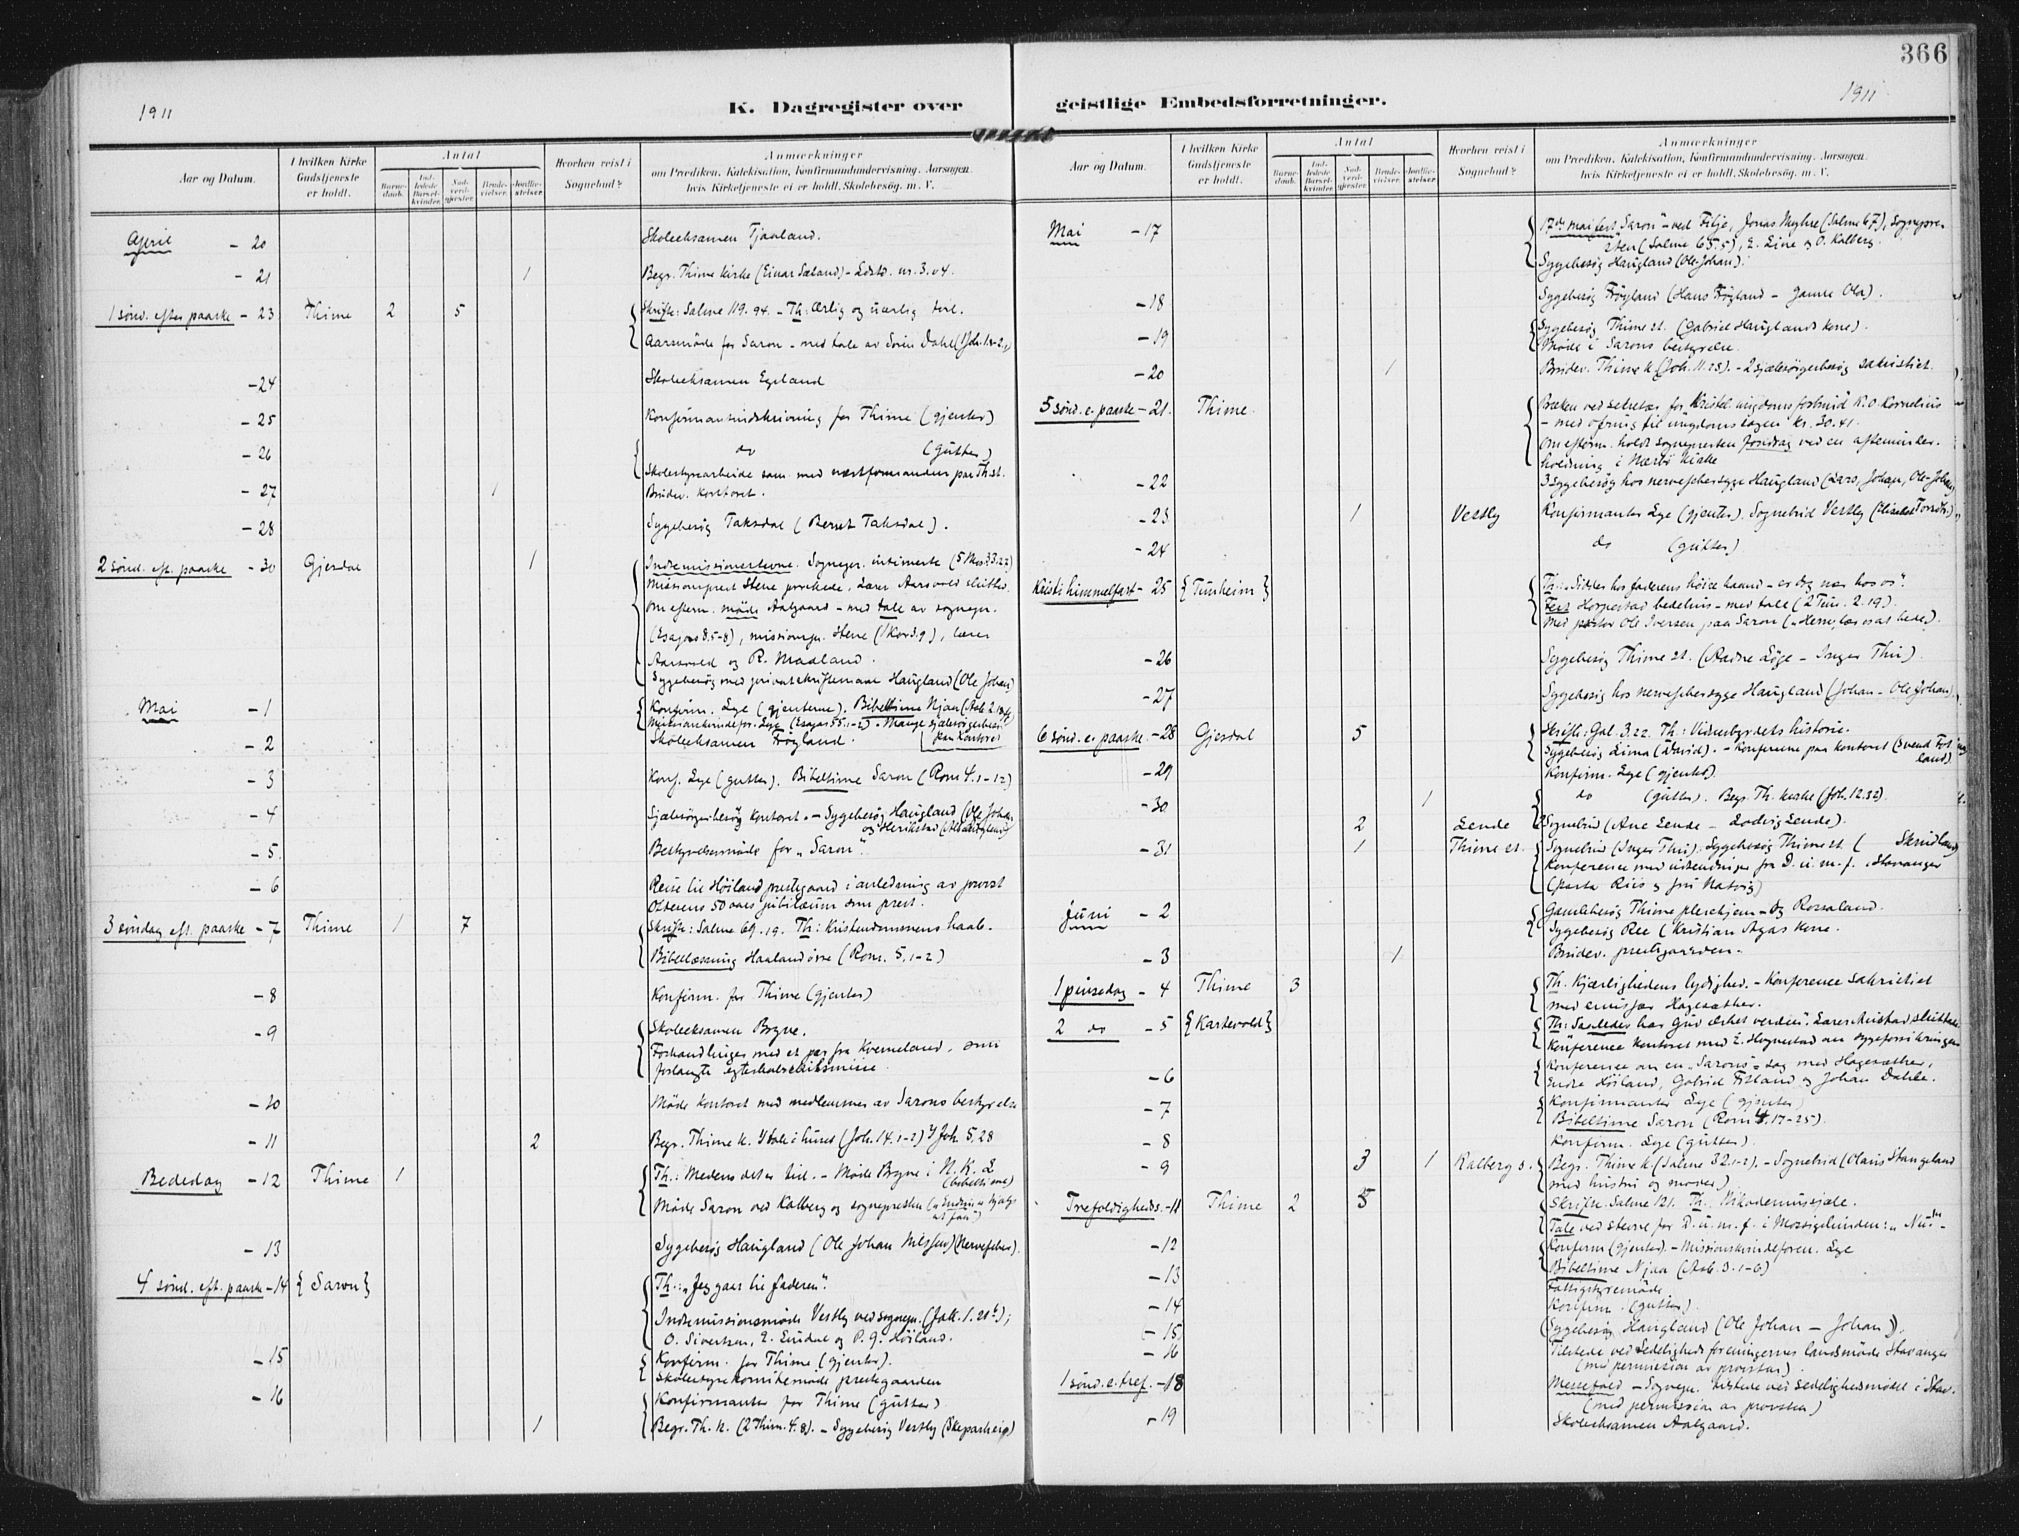 366
1911
K. Dagregister over geistlige Embedsforretninger.
1911
Aar og Datum.
I hvilken Kirke Gudstjeneste er holdt.
Antal
Barne-daab.
Ind-ledede Barsel-kvinder.
Nad-verd-gjester.
Brude-vielser.
Jordfæ-stelser.
Hvorhen reist i Sognebud?
Anmærkninger
om Prædiken, Katekisation, Konfirmandundervisning. Aarsagen,
hvis Kirketjeneste ei er holdt. Skolebesøg. m. V.
April - 20 Skoleeksamen Tjaaland.
- 21 1 Begr. Thime kirke (Einar Sæland) - Lidstd. nr. 3.04.
1 sønd. efter paaske - 23 Thime 2 5 Skrifte: Salme 119.94. - Th: Ærlig og uærlig tvil.
Aarsmøde for Saron - med tale av Sven Dahl (1 Joh. 1.8-2.)
- 24 Skoleeksamen Egeland
- 25 Konfirmantindskrivning for Thime (gjenter)
- 26 do (gutter)
Skolestyrearbeide sam. med næstformanden paa Th.st.
- 27 1 Brudev. kontoret.
- 28 Sygebesøg Taksdal (Bernt Taksdal).
2 sønd. eft. paaske - 30 Gjesdal 1 Indremissionsstevne. Sognepr. intimerte (5 Mos. 33.22)
Missionsprest Stene prækede. Lærer Aarsvold sluttet.
Om efterm. møde Aalgaard - med tale av sognepr.
(Esajas 8.5-8), missionspr. Stene (1 Kor. 3.9), lærer
Aarsvold og R. Madland.
Sygebesøg med privatskriftemaal Haugland (Ole Johan)
Mai - 1 Konfirm. Lye (gjenterne). Bibeltime Njaa
Missionskvindefor. Lye (Esajas 55.1-2) - Mange sjælesørgerbesøk
paa kontoret
- 2 Skoleeksamen Frøyland.
- 3 Konf. Lye (gutter). Bibeltime Saron (Rom. 4.1-12)
- 4 Sjælesørgerbesøg kontoret. - Sygebesøg Haugland (Ole Johan
- 5 Bestyrelsesmøde for "Saron".
- 6 Reise til Høiland prestegaard i anledning av provst
Oftedns 50 aars jubilæum som prest.
3 søndag eft. paaske - 7 Thime 1 7 Skrifte: Salme 69.19. Th: Kristendommens haab.
Bibellæsning Haaland øvre (Rom. 5.1-2)
- 8 Konfirm. for Thime (gjenter)
- 9 Skoleeksamen Bryne.
Forhandlinger med et par fra Kverneland, som
forlangte egteskabsskilsmisse.
- 10 Møde kontoret med medlemmer av Sarons bestyrelse
- 11 2 Begr. Thime k. Tale i huset (Joh. 14.1-2) Joh. 5.28
Bededag - 12 Thime 1 Th.: Medens det er tid. - Møde Bryne i N. K. L
(bibeltime)
Møde Saron ved Kalberg og sognepresten
- 13 Sygebesøg Haugland (Ole Johan Nilssen) (Nervefeber).
4 sønd. eft. paaske - 14 {Saron} Th.: "Jeg gaar til faderen".
Indremissionsmøde Vestly ved sognepr. (Jak. 1.21b);
O. Sivertsen, E. Lindal og P. G. Høiland.
- 15 Konfirm. for Thime (gjenter).
Skolestyrekomitemøde prestegaarden
- 16 Konfirmanter for Thime (gutter)
1 Begr. Th. k. (2 Thim. 4.8). - Sygebesøg Vestly
Aar og Datum.
I hvilken Kirke Gudstjeneste er holdt.
Antal
Barne-daab.
Ind-ledede Barsel-kvinder.
Nad-verd-gjester.
Brude-vielser.
Jordfæ-stelser.
Hvorhen reist i Sognebud?
Anmærkninger
om Prædiken, Katekisation, Konfirmandundervisning. Aarsagen,
hvis Kirketjeneste ei er holdt. Skolebesøg. m. V.
Mai - 17 17de mai fest "Saron" - ved Filje, Jonas Myhre (Salme 67), Sognepre-
sten (Salme 65.5), E. Line og O. Kalberg.
Sygebesøg Haugland (Ole Johan).
- 18 Sygebesøg Frøyland (Hans Frøyland - Gamle Ola).
- 19 Sygebesøg Thime st. (Gabriel Hauglands kone).
Møde i Sarons bestyrelse.
- 20 1 Brudev. Thime k (Joh. 11.25). - 2 sjælesørgerbesøg sakristiet.
5 sønd. e. paaske - 21. Thime. Præken ved sekretær for Kristel. ungdomsforbund K. O. Kornelius
- med ofring til "ungdomsdagen" kr. 30.41.
Om efterm. holdt sognepresten foredrag ved en aftenunder-
holdning i Nærbø kirke
- 22 3 Sygebesøg hos nervefebersyge Haugland (Lars, Johan, Ole-Johan)
- 23 1 Vestly Konfirmanter Lye (gjenter). Sognebud Vestly
- 24 do (gutter)
Kristi himmelfart - 25 {Tunheim} Th.: "Sidder hos faderens høire haand - er dog nær hos os".
Fest Hognestad bedehus - med tale (2 Tim. 2.19).
Med pastor Ole Iversen paa Saron
- 26 Sygebesøg Thime st. (Radne Løge - Inger Thu).
- 27 Sygebesøg hos nervefebersyge Haugland (Johan - Ole Johan)
6 sønd. e. paaske - 28 Gjesdal 5 Skrifte: Gal. 3.22. Th.: Vidnesbyrdets historie.
Sygebesøg Lima (David). - Konference paa kontoret
- 29 Konfirm. Lye (gjenter)
- 30 1 do (gutter). Begr. Th. kirke (Joh. 12.32).
2 Lende Sognebud (Ane Lende - Lodvig Lende).
- 31 1 Thime st. Sognebud (Inger Thu). Sygebesøg Thime st. ( Skrudland)
Konference med utsendinger fra D. u. m. f. i Stavanger
(pastor Riis og frü Natvig)
Juni - 2 Gamlebesøg Thime pleiehjem - og Rossaland.
Sygebesøg Ree (Kristian Ayas kone.
- 3 1 Brudev. prestegaarden.
1 pinsedag - 4 Thime 3 Th. Kjærlighedens lydighed. - Konference sakristiet
med emissær Hagesæther.
2 do - 5 {Kartevold} Th: Saaledes har Gud elsket verden.
Konference kontoret med E. Hognestad om sygeforsikringen
- 6 Konference om en "Sarons"-dag med Hagesæther,
Endre Høiland, Gabriel Fitland og Johan Dahle.
- 7 Konfirmanter Lye (gjenter)
Bibeltime Saron (Rom 4.17-25)
- 8 Konfirm. Lye (gutter).
- 9 3 1 Kalberg s. Begr. Thime k. (Salme 32.1-2). - Sognebud (Olaus Stangeland
med hustru og moder)
Trefoldigheds. - 11 Thime 2 5 Skrifte. Salme 121. Th. Nikodemussjæle.
Tale ved stevne for D. u. m. f. i Mossigelunden: "Nu!" -
- 12 Konfirm (gjenter). - Missionskvindeforen. Lye
Bibeltime Njaa
- 13 Fattigstyremøde
- 14 Konfirm. (gutter).
- 15 Sygebesøg Haugland (Ole Johan - Johan).
- 16 Tilstede ved sedelighedsforeningernes landsmøde Stavanger
(med permission av provsten)
1 sønd. e. tref. - 18 Messefald - Sognepr. tilstede ved sedelighedsmødet i Stav.
(med permission av provsten)
- 19 Skoleeksamen Aalgaard.